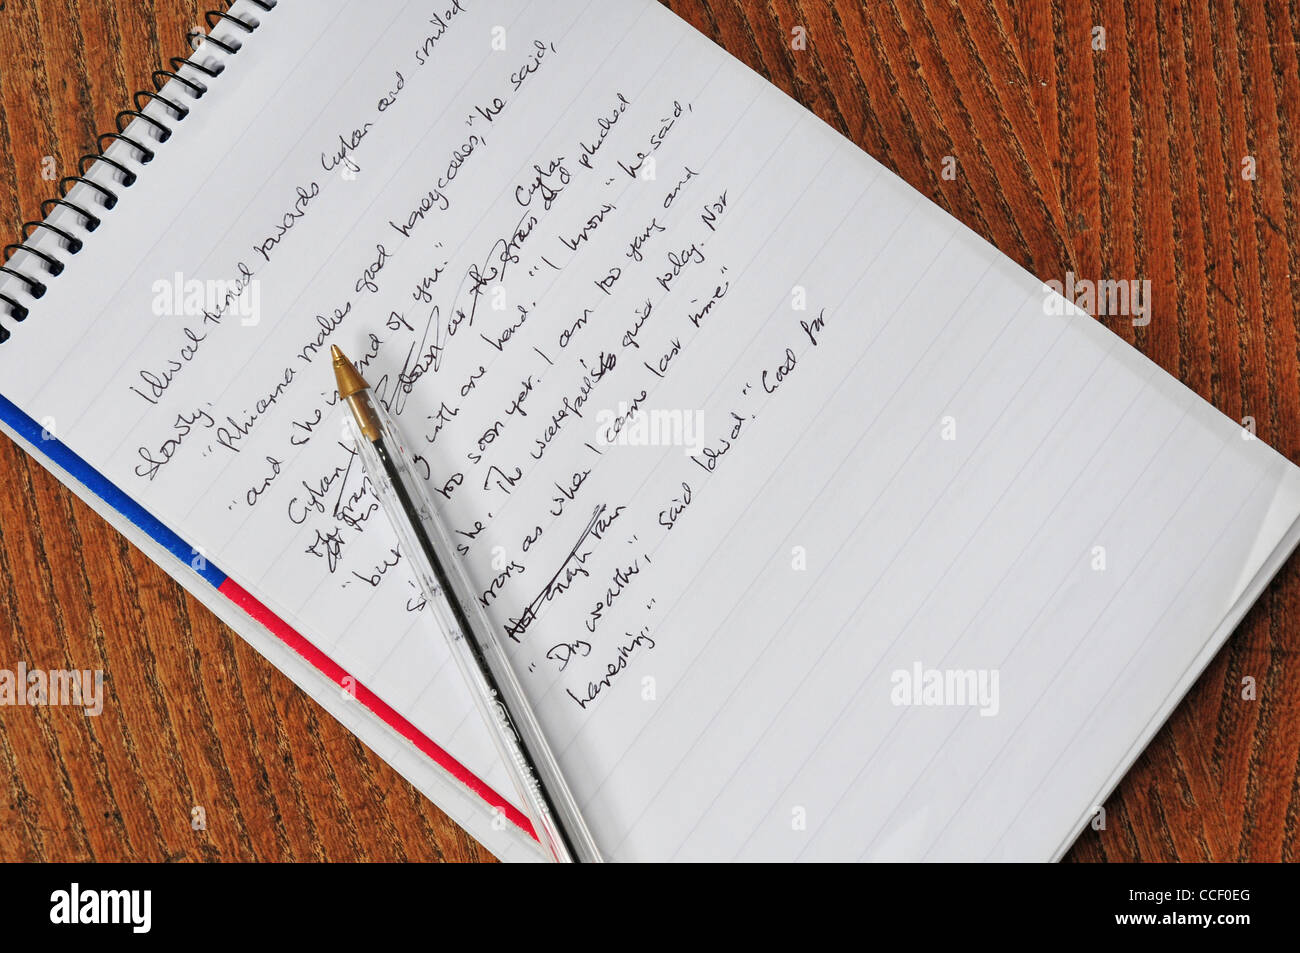 Idwal turned towards Cyfan and smiled
slowly.
"Rhianna makes good honeycakes," he said,
"and she is fond of you."
Cyfan
Cyfan down at the grass and plucked
with one hand. "I know," he said,
"but too soon yet. I am too young and
so is she. The waterfall is quiet today. Not
strong as when I came last time"
Not enough rain
"Dry weather," said Idwal. "Good for
harvesting."
alamy
alamy
Image ID: CCF0EG
www.alamy.com